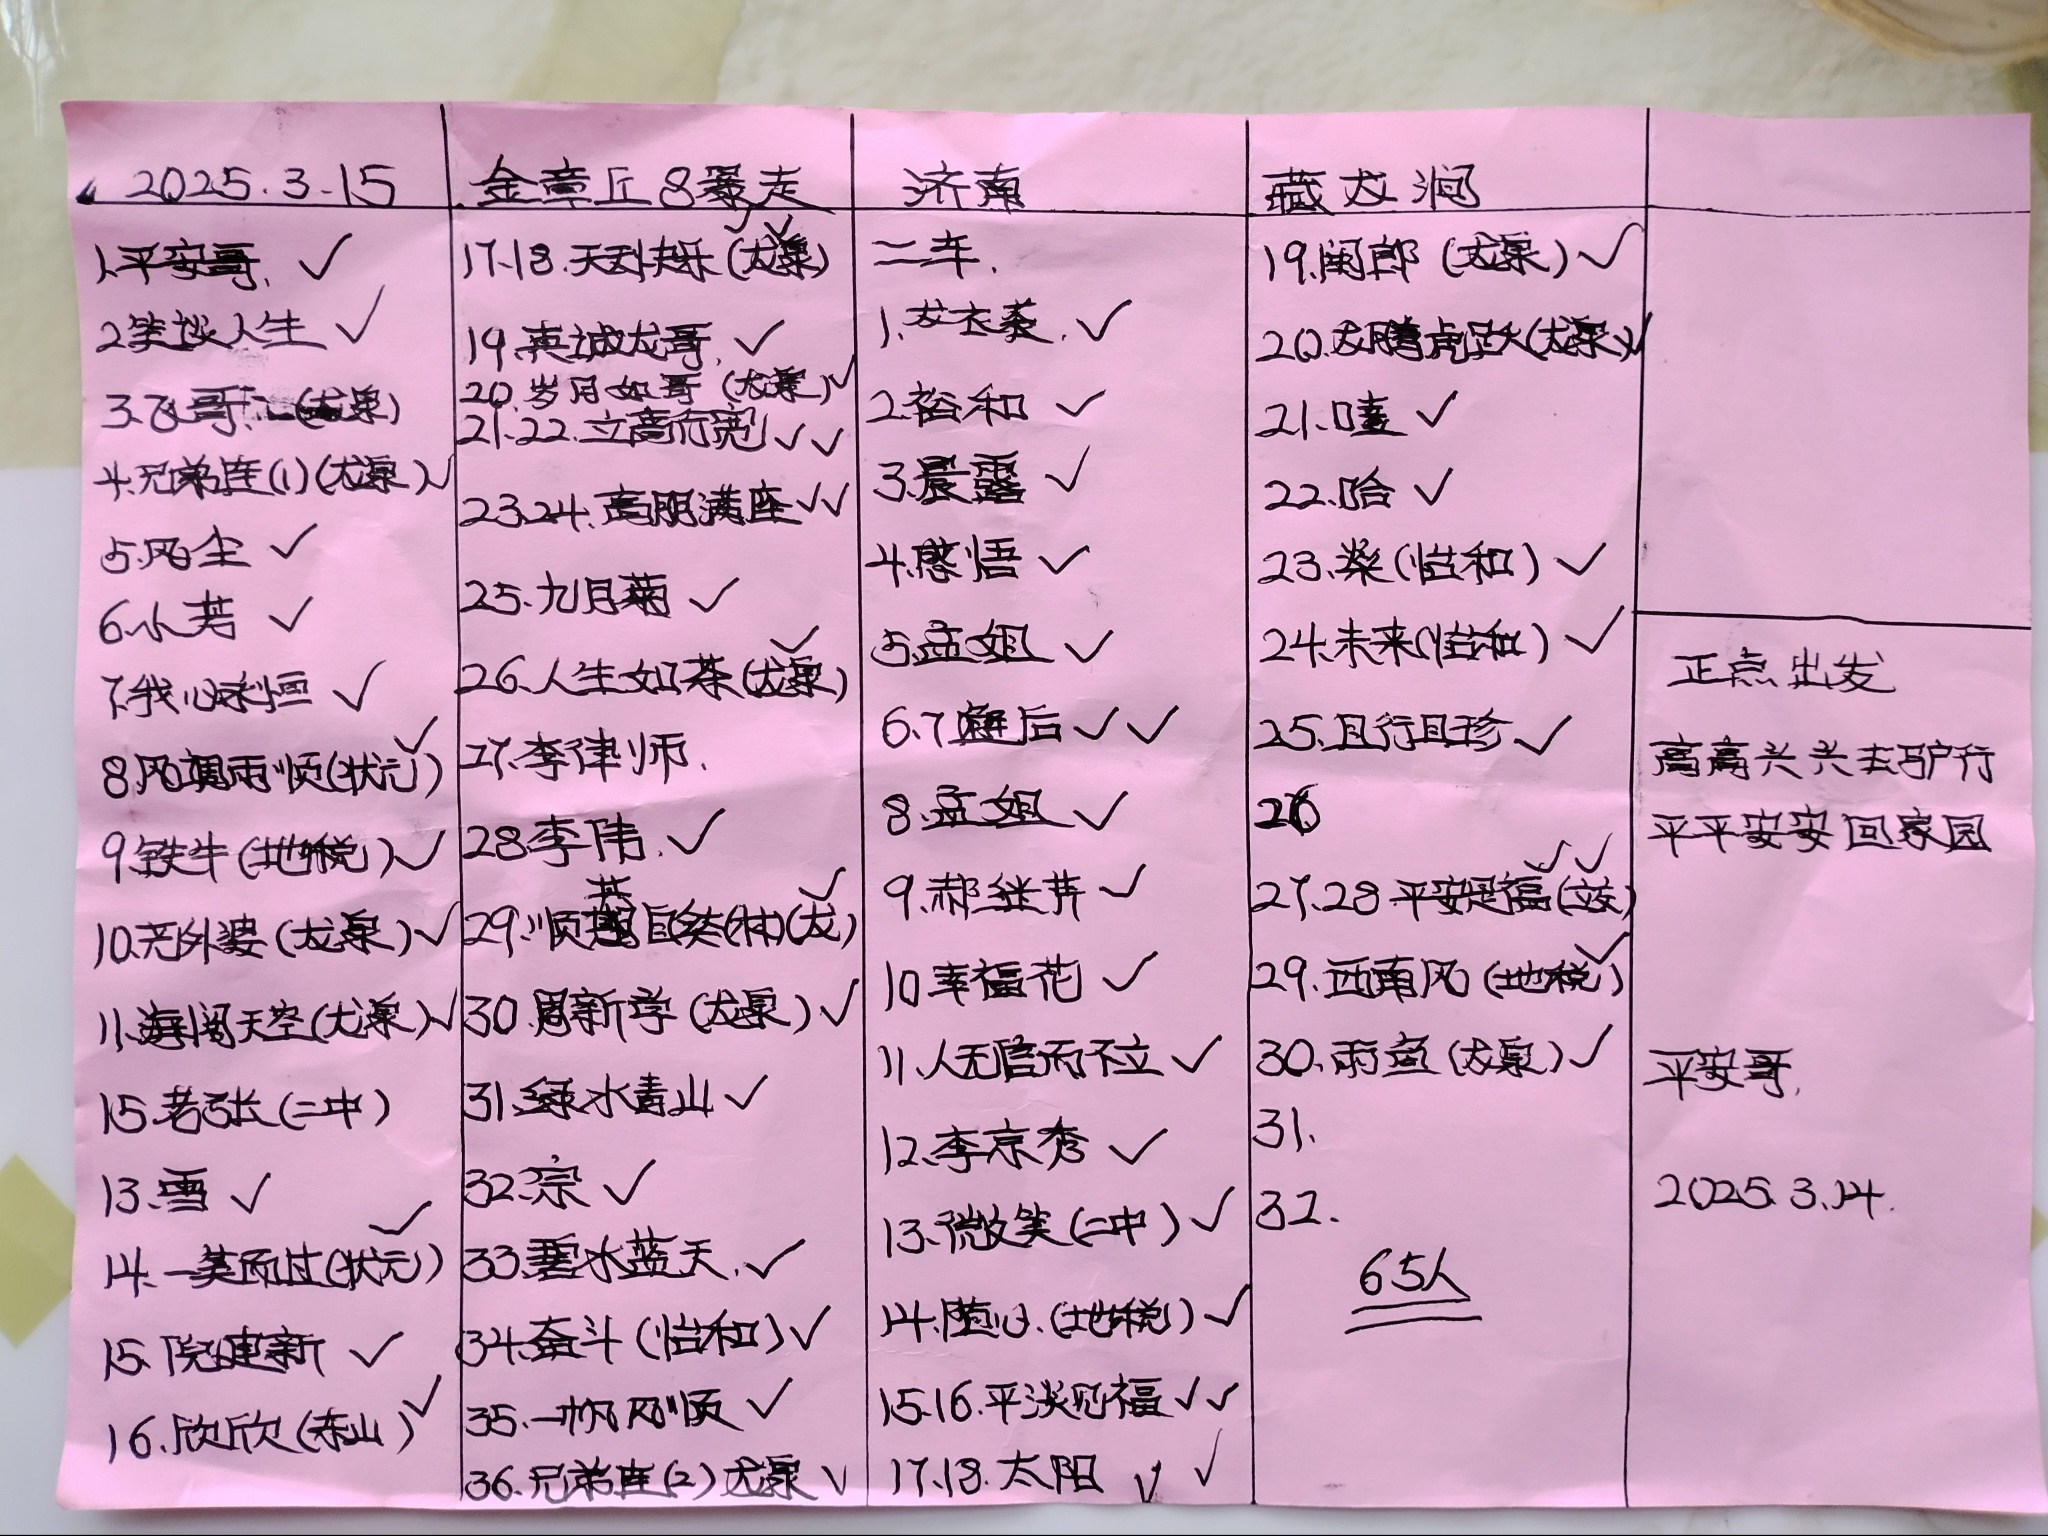 2025.3.15
金章丘8暴走
济南
藏龙涧
1.平安哥. ✓
2.笑谈人生 ✓
3.飞哥(龙泉)
4.兄弟连(1)(龙泉)✓
5.风尘 ✓
6.小芳 ✓
7.我心永恒 ✓
8.风调雨顺(状元)✓
9.铁牛(地税)✓
10.老外婆(龙泉)✓
11.海阔天空(龙泉)✓
15.老张(二中)
13.雪 ✓
14.一笑而过(状元)✓
15.院建新 ✓
16.欣欣(东山)✓
17.18.天天快乐(龙泉)✓✓
19.真诚龙哥. ✓
20.岁月如哥(龙泉)✓
21.22.立高行宽 ✓✓
23.24.高朋满座 ✓✓
25.九月菊 ✓
26.人生如茶(龙泉)✓
27.李律师.
28.李伟. ✓
29.顺其自然(林)(龙)✓
30.周新学(龙泉)✓
31.绿水青山 ✓
32.宗 ✓
33.碧水蓝天. ✓
34.奋斗(怡和)✓
35.一帆风顺 ✓
36.兄弟连(2)龙泉 ✓
二车.
1. ✓
2.裕和 ✓
3.晨露 ✓
4.感悟 ✓
5.孟姐 ✓
6.7邂后 ✓✓
8.孟姐 ✓
9.郝继芹 ✓
10.幸福花 ✓
11.人无信而不立 ✓
12.李京秀 ✓
13.微笑(二中)✓
14.随心.(地税)✓
15.16.平淡见福 ✓✓
17.18.太阳 ✓✓
19.闽郎(龙泉)✓
20.龙腾虎跃(龙泉)✓
21.嘻 ✓
22.哈 ✓
23.燊(怡和)✓
24.未来(怡和)✓
25.且行且珍 ✓
26
27.28.平安是福(立交)✓✓
29.西南风(地税)✓
30.雨鱼(龙泉)✓
31.
32.
65人
正点出发
高高兴兴去驴行
平平安安回家园
平安哥.
2025.3.14.